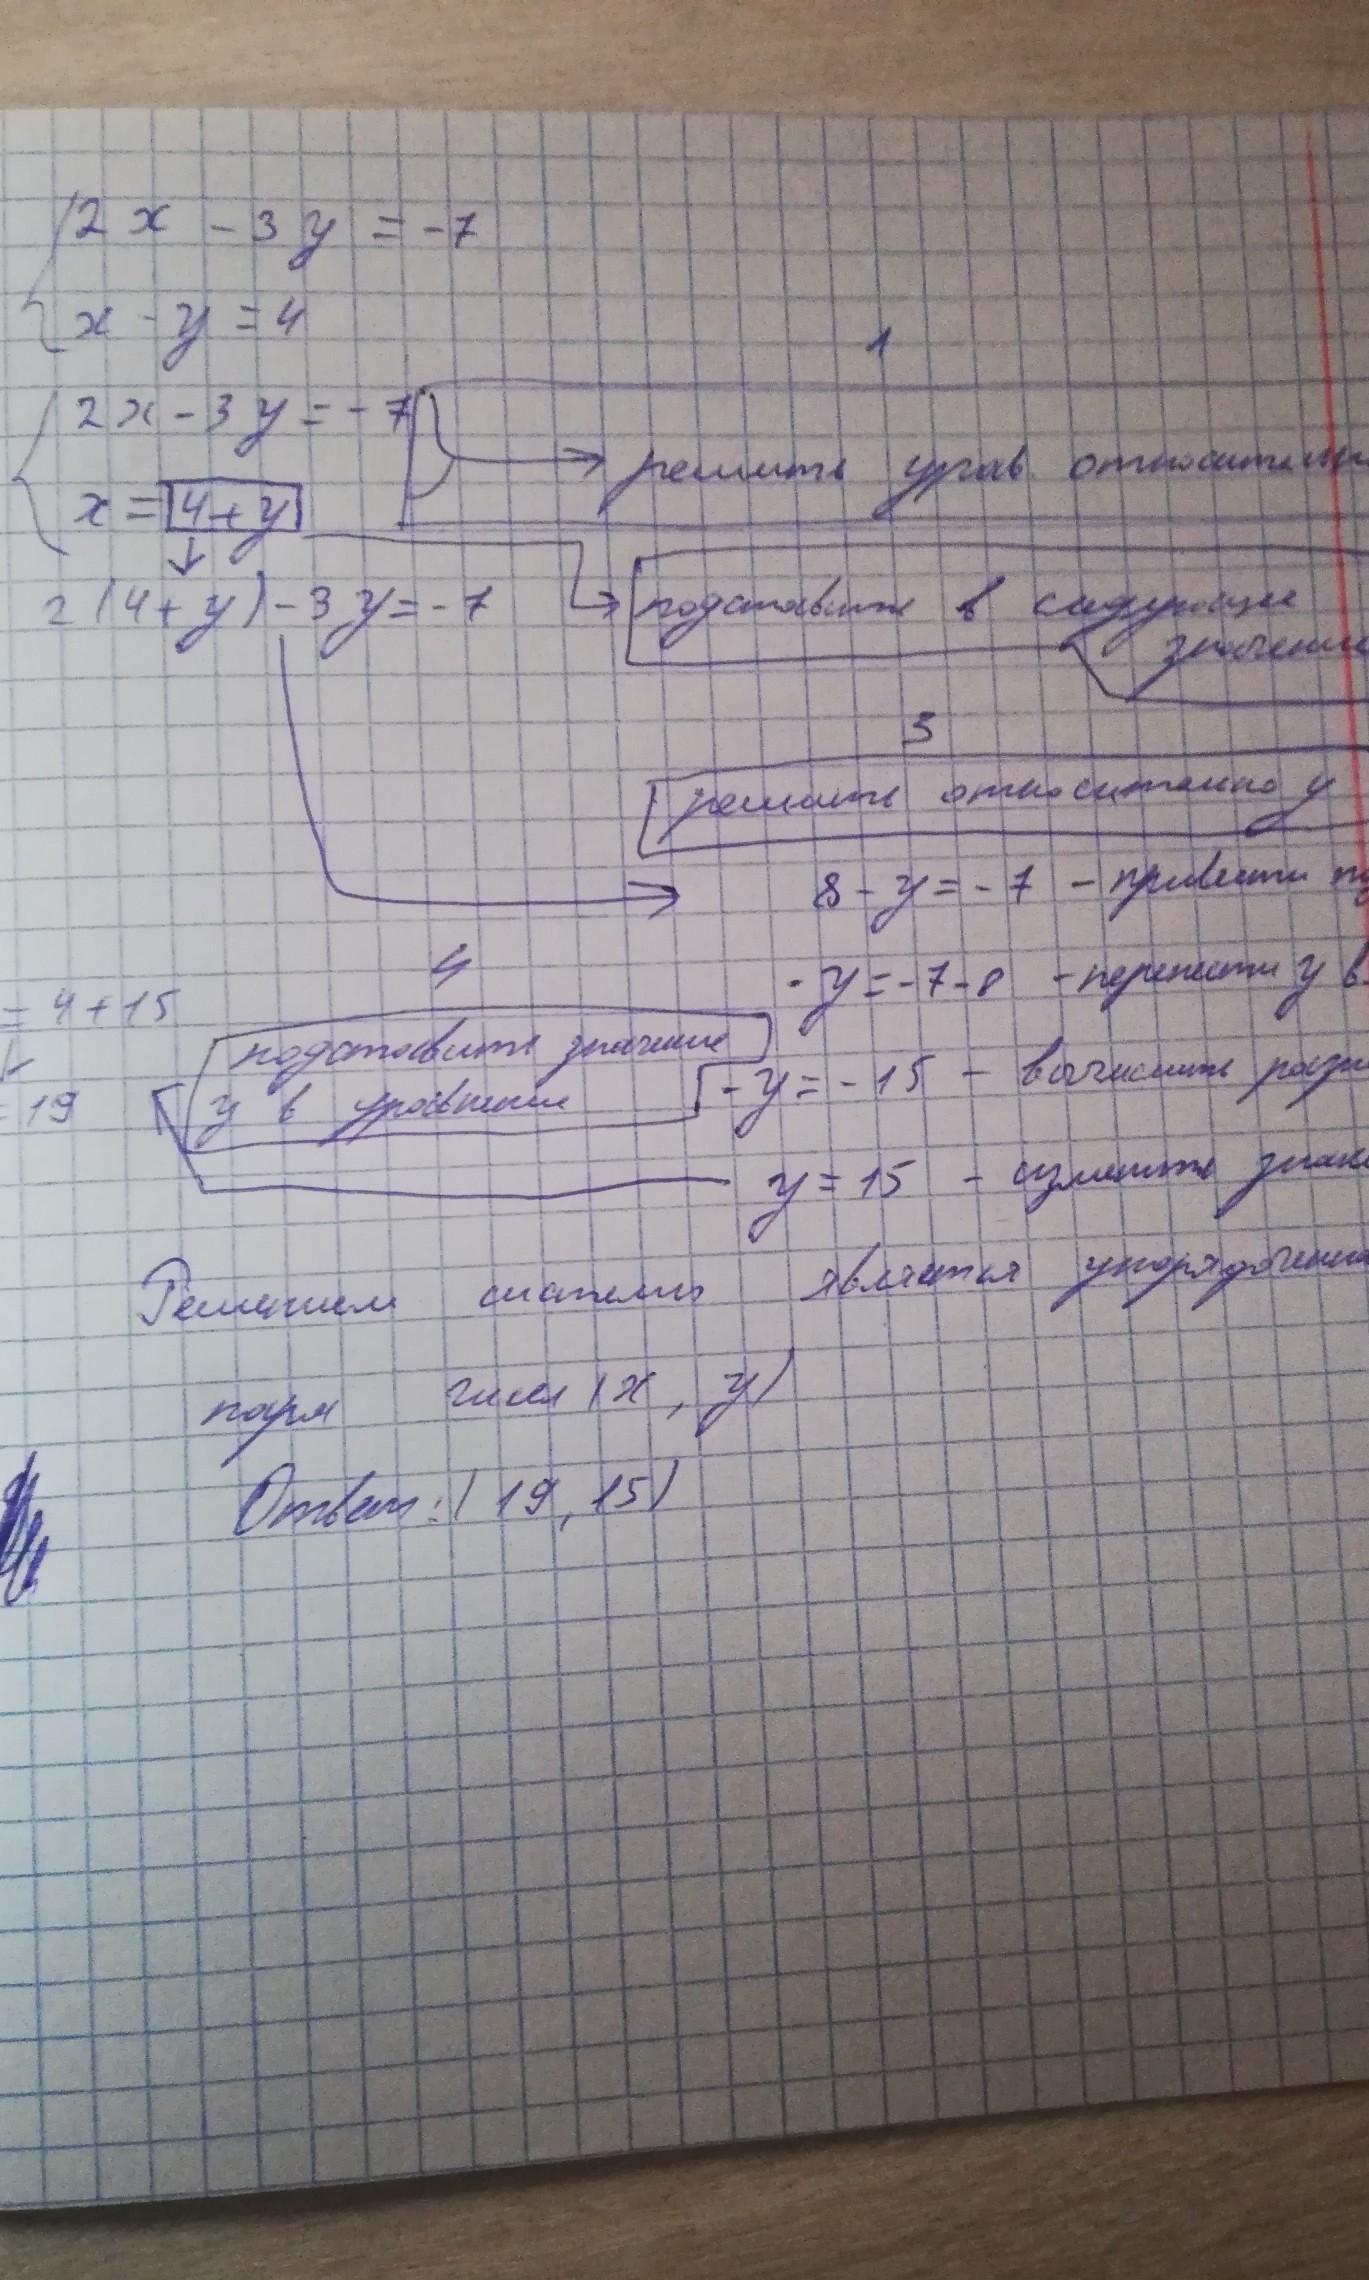 2x - 3y = -7
x - y = 4
1
2x - 3y = -7
решить урав относительн
x = 4+y
2(4+y) - 3y = -7
подставить в следующее
значение
3
решить относительно y
8 - y = -7 - привести
4
-y = -7-8 - перенести y в
= 4+15
подставить значение
y в уравнение
-y = -15 - вычислить разн
=19
y = 15 - изменить знаки
Решением системы является упорядоченна
пара чисел (x, y)
Ответ: (19, 15)